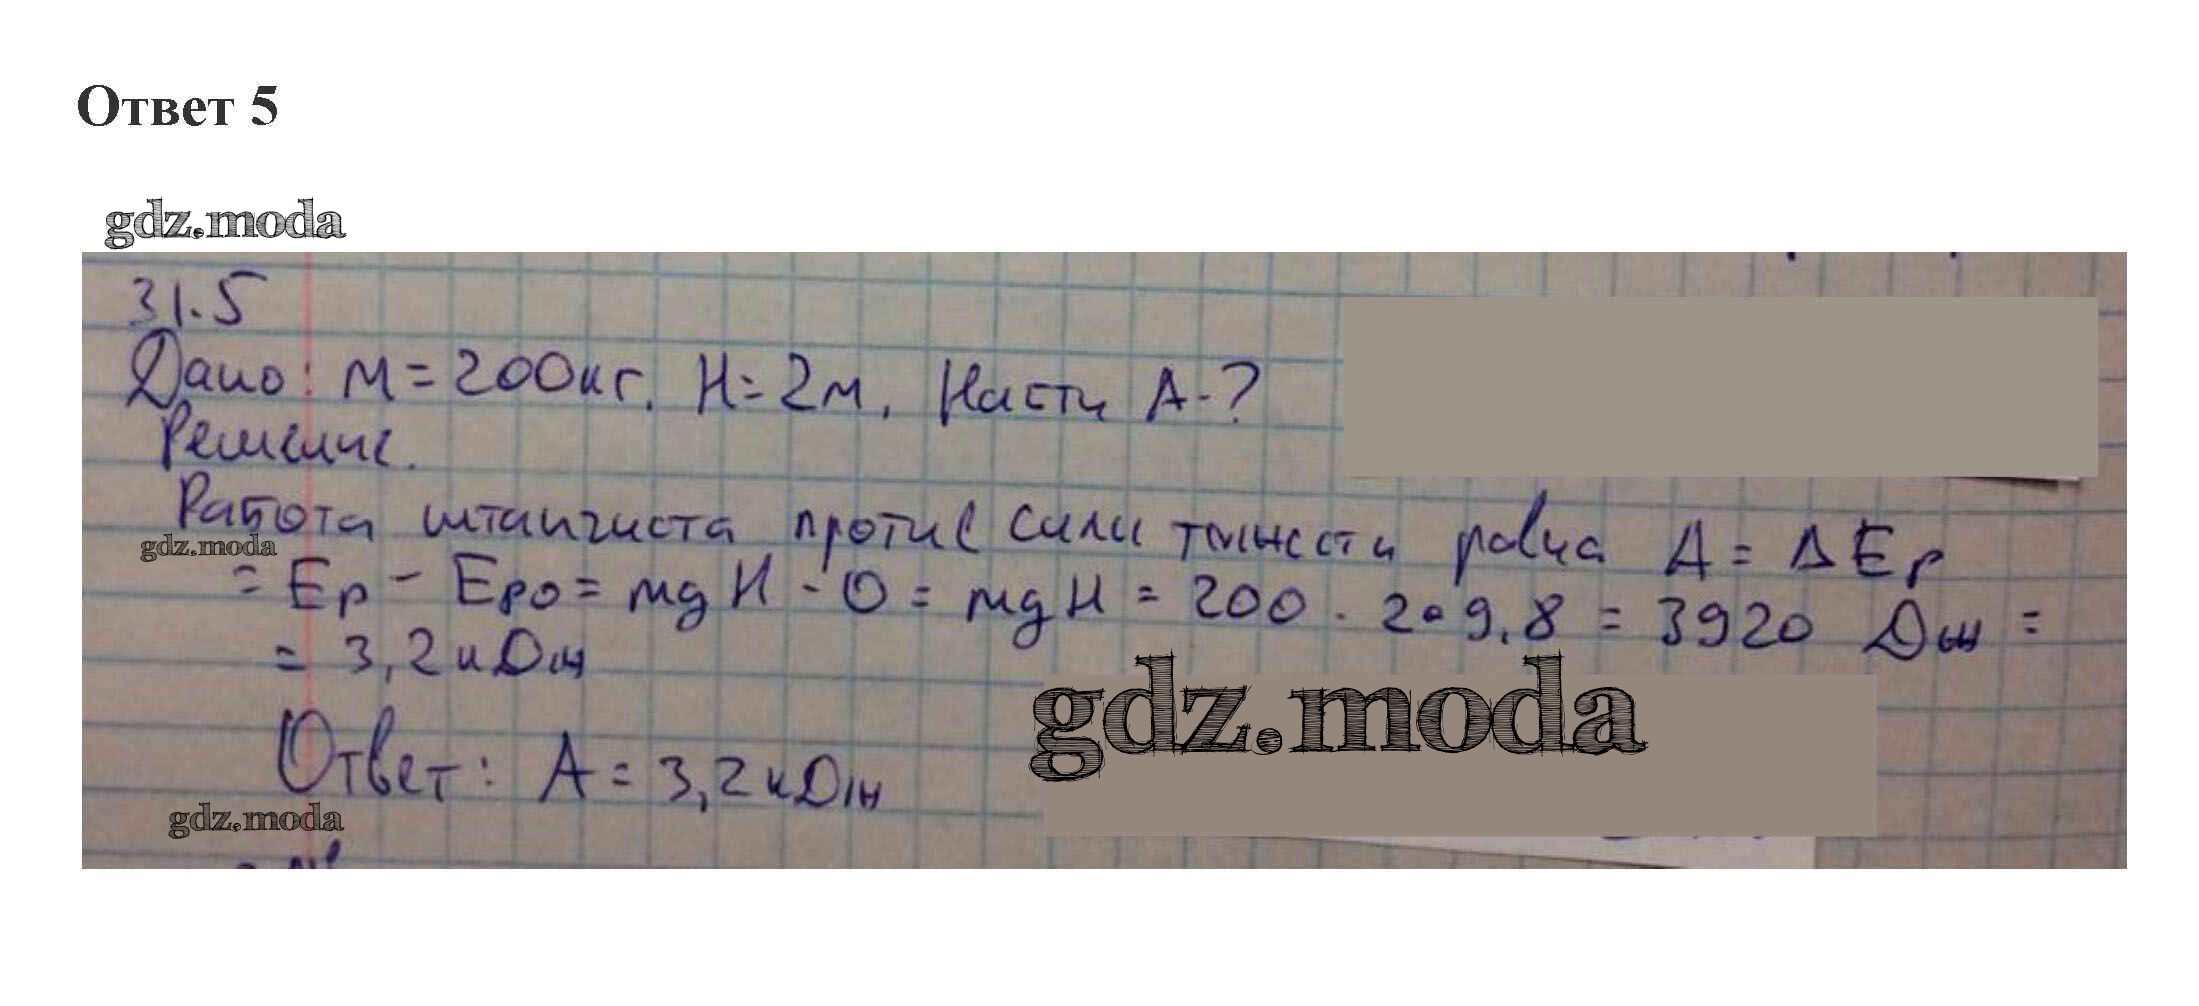 Ответ 5
gdz.moda
31.5
Дано: м = 200кг. Н = 2м. Насти А-?
Решение.
Работа штангиста против силы тяжести равна А = ΔЕр
gdz.moda
= Ер - Еро = mgH - 0 = mgH = 200 · 2 · 9,8 = 3920 Дж =
= 3,2 кДж
gdz.moda
Ответ: А = 3,2 кДж
gdz.moda